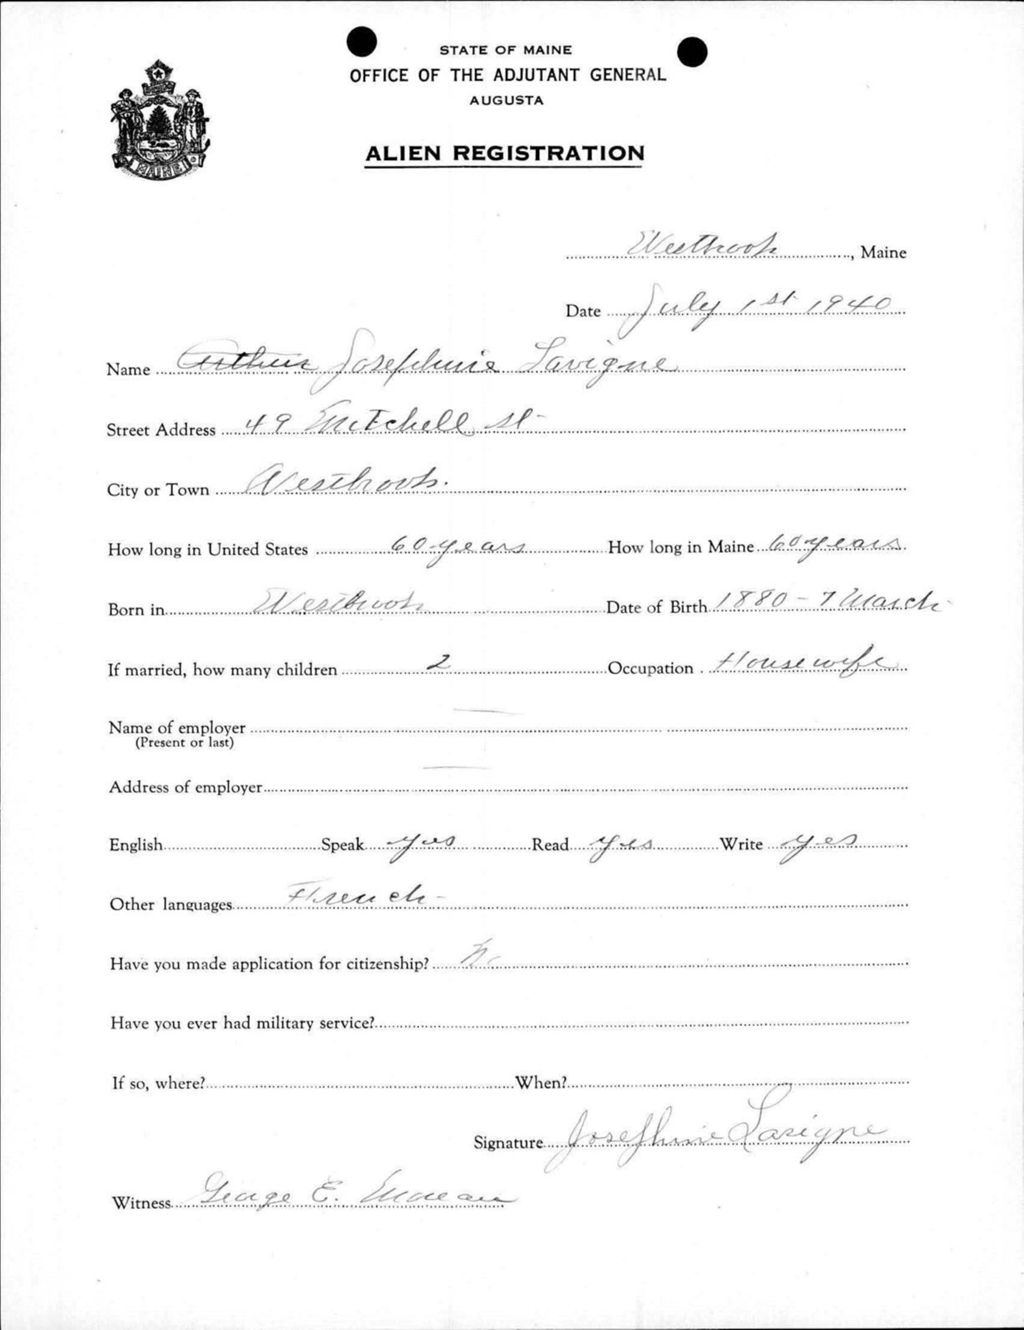 STATE OF MAINE
OFFICE OF THE ADJUTANT GENERAL
AUGUSTA
ALIEN REGISTRATION
MAINE
Westbrook, Maine
Date July 1st 1940
Name Arthur Josephine Lavigne
Street Address 49 Mitchell St
City or Town Westbrook.
How long in United States 60 years How long in Maine 60 years
Born in Westbrook Date of Birth 1880 - 7 March
If married, how many children 2 Occupation Housewife
Name of employer
(Present or last)
Address of employer
English Speak yes Read yes Write yes
Other languages French
Have you made application for citizenship? No
Have you ever had military service?
If so, where? When?
Signature Josephine Lavigne
Witness George E. Moreau